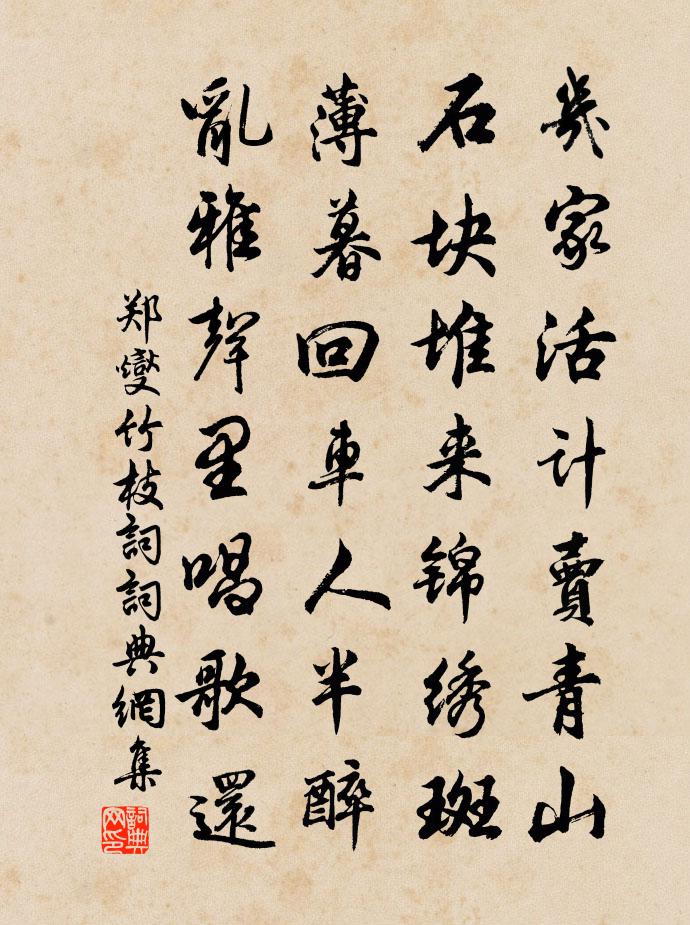 幾家活计賣青山
石块堆来锦绣斑
薄暮回車人半醉
亂雅聲里唱歌還
郑燮竹枝詞詞典網集
詞典网印